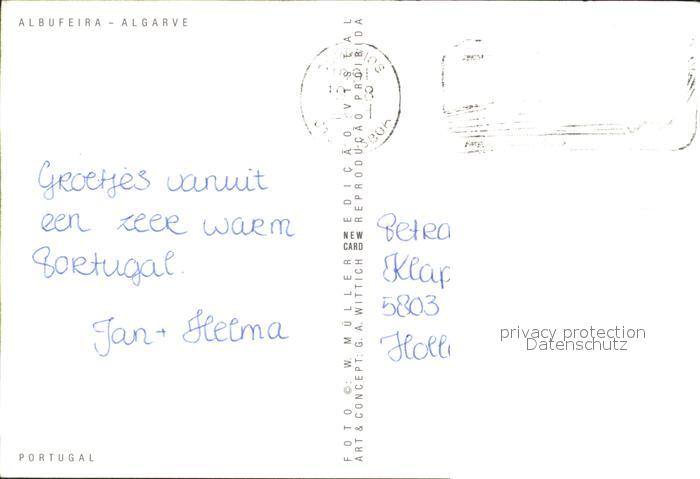 ALBUFEIRA – ALGARVE
Groetjes vanuit
een zeer warm
Portugal.
Jan + Helma
PORTUGAL
FOTO ©: W. MÜLLER EDIÇÃO VTSEAL
ART & CONCEPT: G. A. WITTICH REPRODUÇÃO PROIBIDA
NEW
CARD
Petra
Klap
5803
Holl
privacy protection
Datenschutz